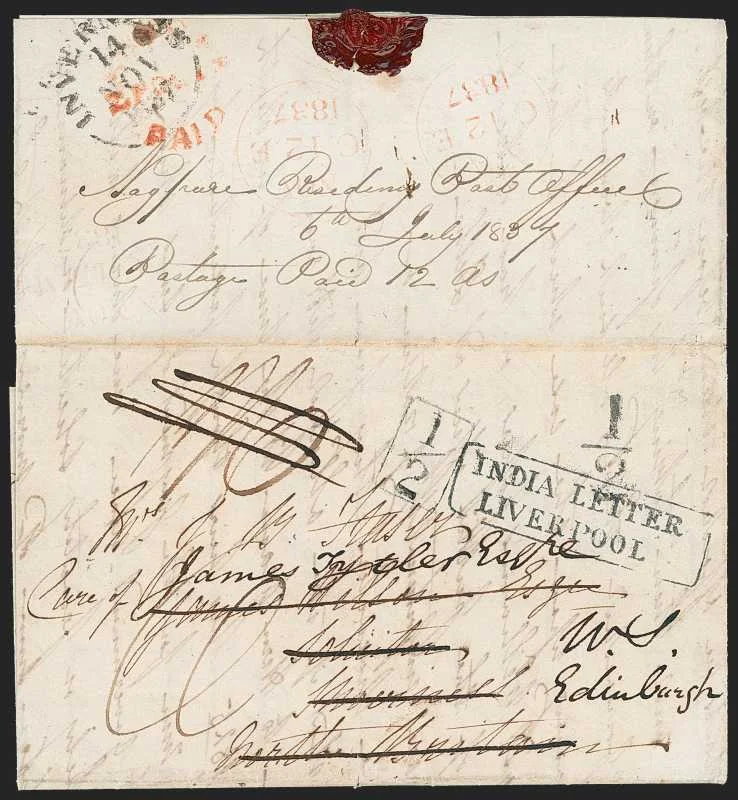 INVERNESS
14
NOV
1837
PAID
1837
C 12 E
1837
C 12 E
Nagpure Residency Post Office
6th July 1837
Postage Paid 12 as
1/2
1/2
INDIA LETTER
LIVERPOOL
Mrs J. B. Fraser
James Tytler Esqre
Care of James Wilson Esqre
Solicitor
W. S.
Inverness
Edinburgh
North Britain